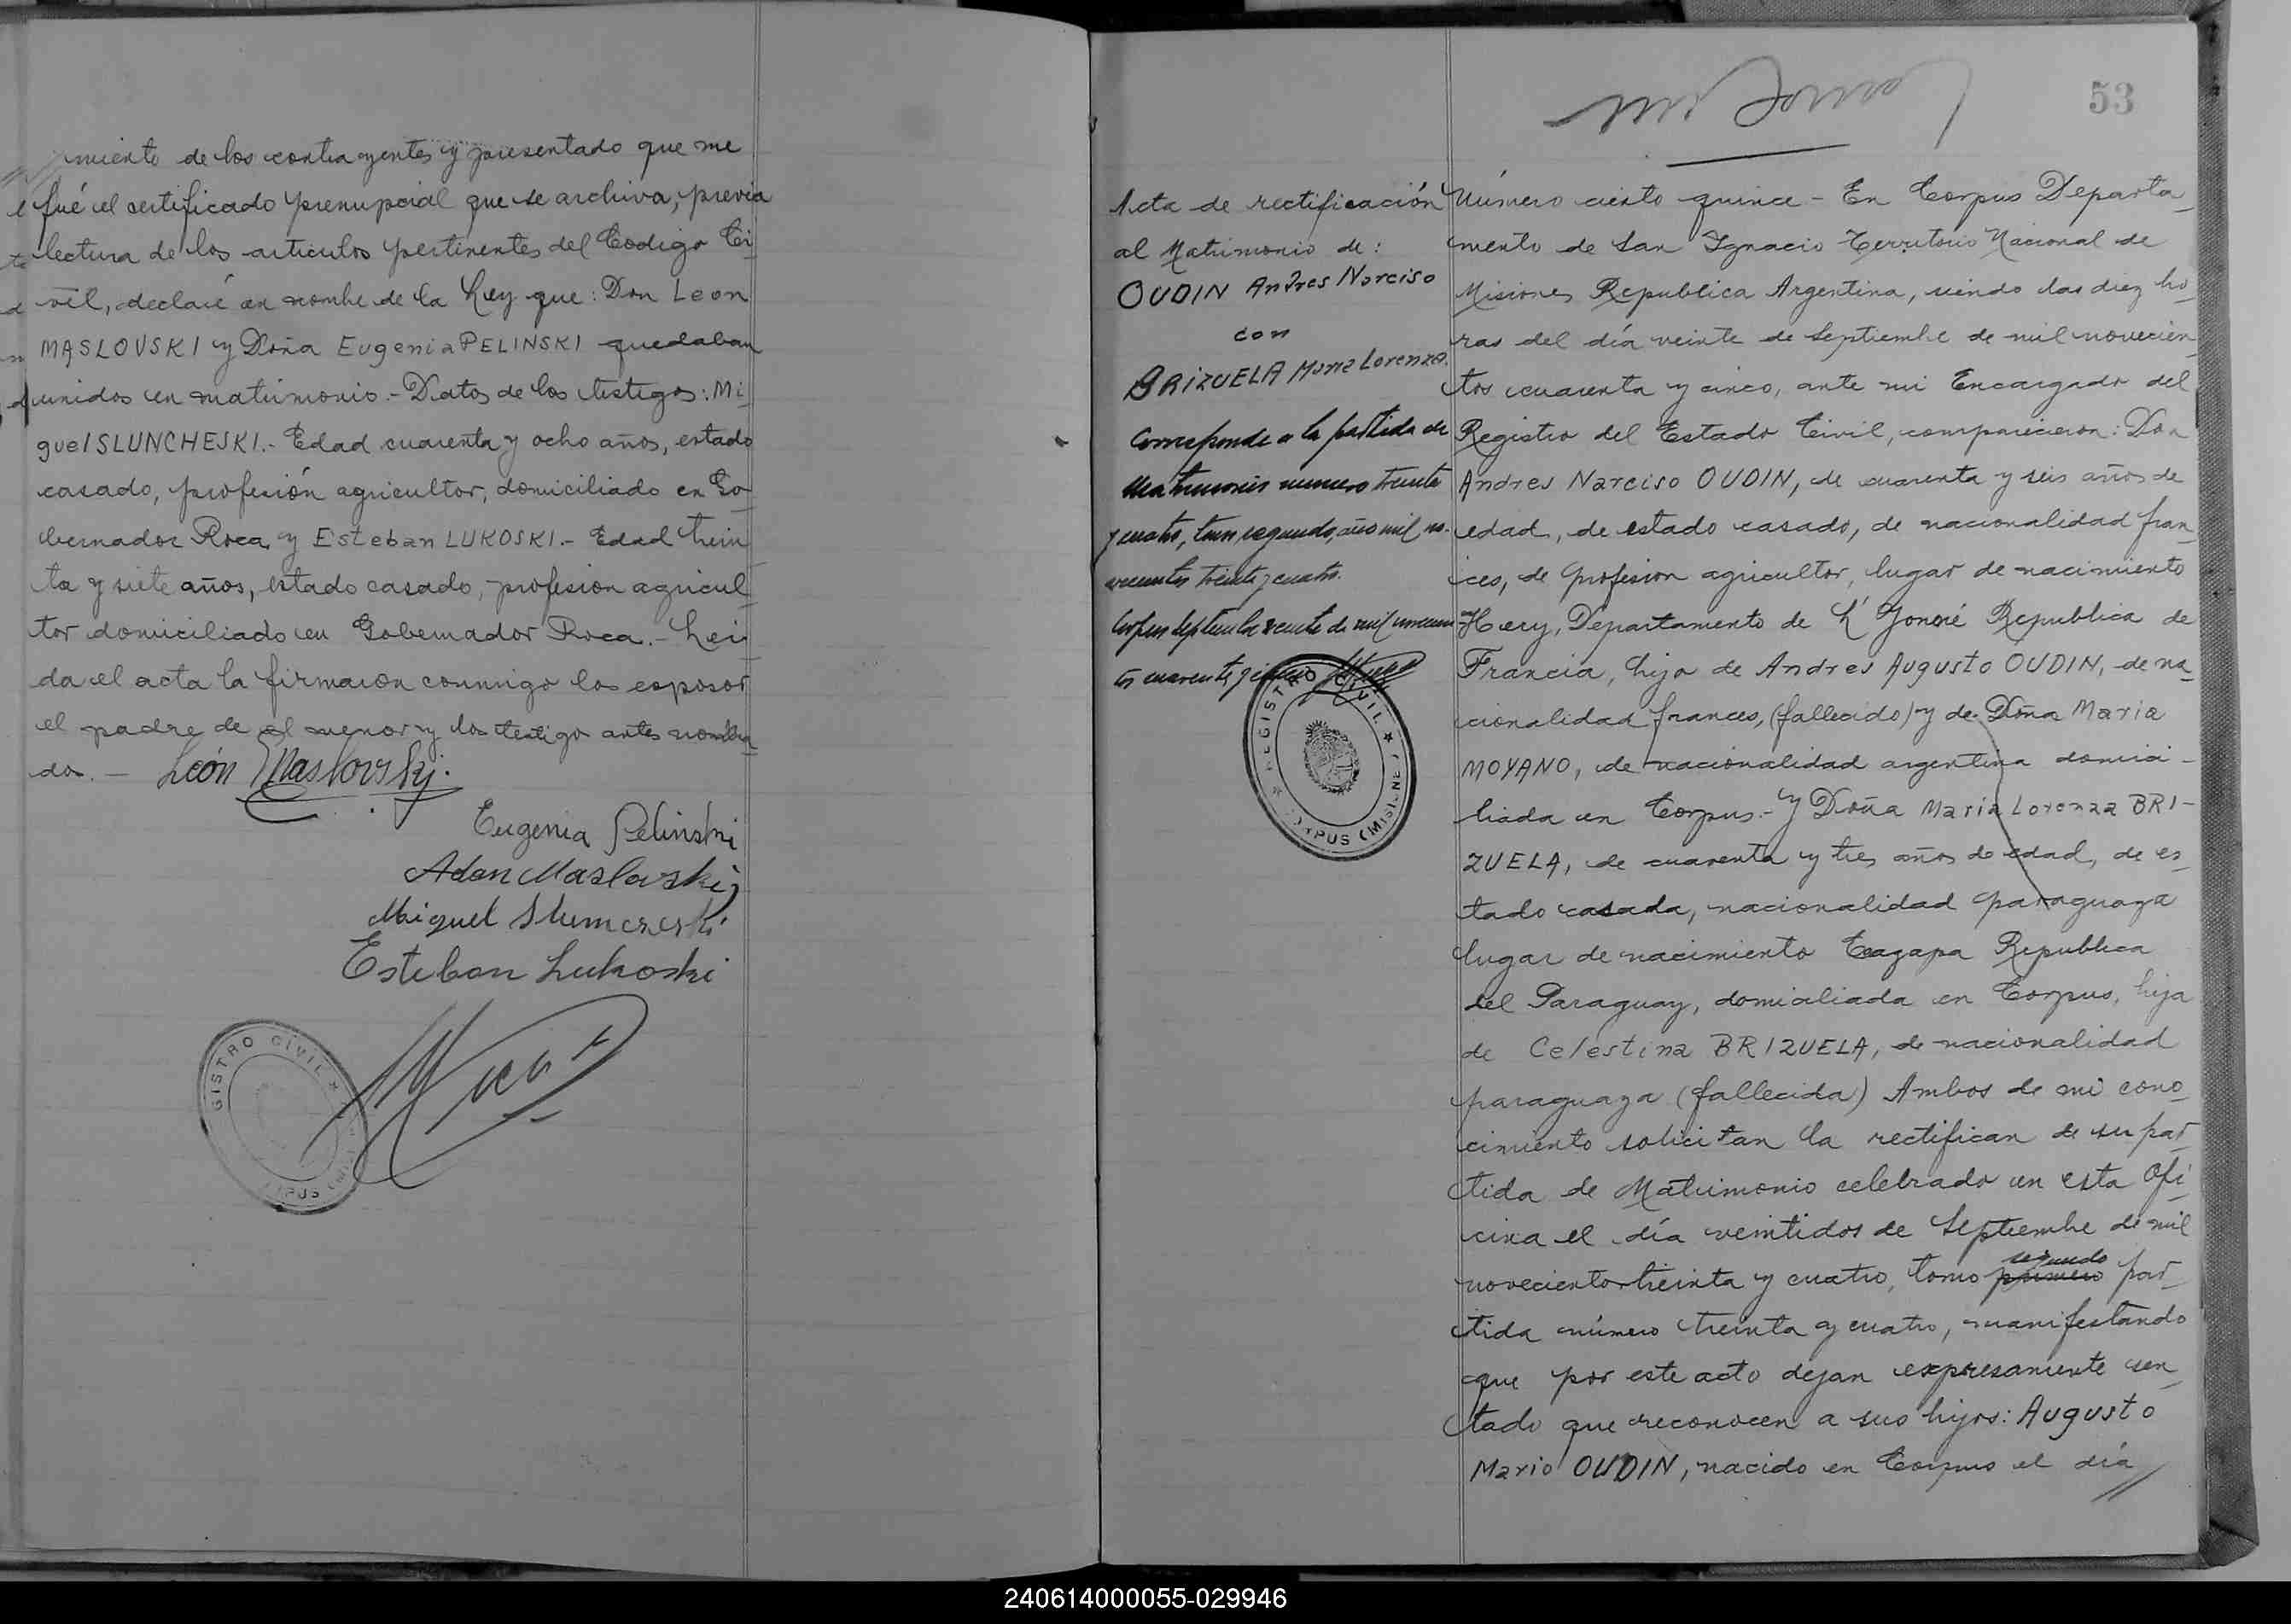 miento de los contrayentes y presentado que me
fué el certificado prenupcial que se archiva, previa
lectura de los articulos pertinentes del Codigo Ci
vil, declaré en nombre de la Ley que: Don Leon
MASLOVSKI y Doña Eugenia PELINSKI quedaban
unidos en matrimonio.- Datos de los testigos: Mi
guel SLUNCHESKI.- Edad cuarenta y ocho años, estado
casado, profesión agricultor, domiciliado en Go
bernador Roca y Esteban LUKOSKI.- Edad trein
ta y siete años, estado casado, profesion agricul
tor domiciliado en Gobernador Roca.- Lei
da el acta la firmaron conmigo los esposos
el padre de el menor y los testigos antes nombra
dos.-
León Maslovski.
Eugenia Pelinski
Adan Maslovski
Miguel
Esteban Lukoski
GISTRO CIVIL
53
Acta de rectificación
al Matrimonio de:
OUDIN Andres Narciso
con
BRIZUELA Maria Lorenza.
Corresponde a la partida de
Matrimonio numero treinta
y cuatro, tomo segundo, año mil no-
vecientos treinta y cuatro.
Corpus Septiembre veinte de mil novecien
tos cuarenta y cinco
REGISTRO CIVIL
CORPUS (MISIONES)
Número ciento quince - En Corpus Departa
mento de San Ignacio Territorio Nacional de
Misiones Republica Argentina, siendo las diez ho
ras del día veinte de Septiembre de mil novecien
tos cuarenta y cinco, ante mi Encargado del
Registro del Estado Civil, comparecieron: Don
Andres Narciso OUDIN, de cuarenta y seis años de
edad, de estado casado, de nacionalidad fran
ces, de profesion agricultor, lugar de nacimiento
Hery, Departamento de L' Republica de
Francia, hijo de Andres Augusto OUDIN, de na
cionalidad frances, (fallecido) y de Doña Maria
MOYANO, de nacionalidad argentina domici-
liada en Corpus.- Y Doña Maria Lorenza BRI-
ZUELA, de cuarenta y tres años de edad, de es
tado casada, nacionalidad paraguaya
lugar de nacimiento Republica
del Paraguay, domiciliada en Corpus, hija
de Celestina BRIZUELA, de nacionalidad
paraguaya (fallecida) Ambos de mi cono
cimiento solicitan la rectifican de su par
tida de Matrimonio celebrado en esta Ofi
cina el día veintidos de Septiembre de mil
segundo
novecientos treinta y cuatro, tomo primero par
tida número treinta y cuatro, manifestando
que por este acto dejan expresamente sen
tado que reconocen a sus hijos: Augusto
Mario OUDIN, nacido en Corpus el día
240614000055-029946